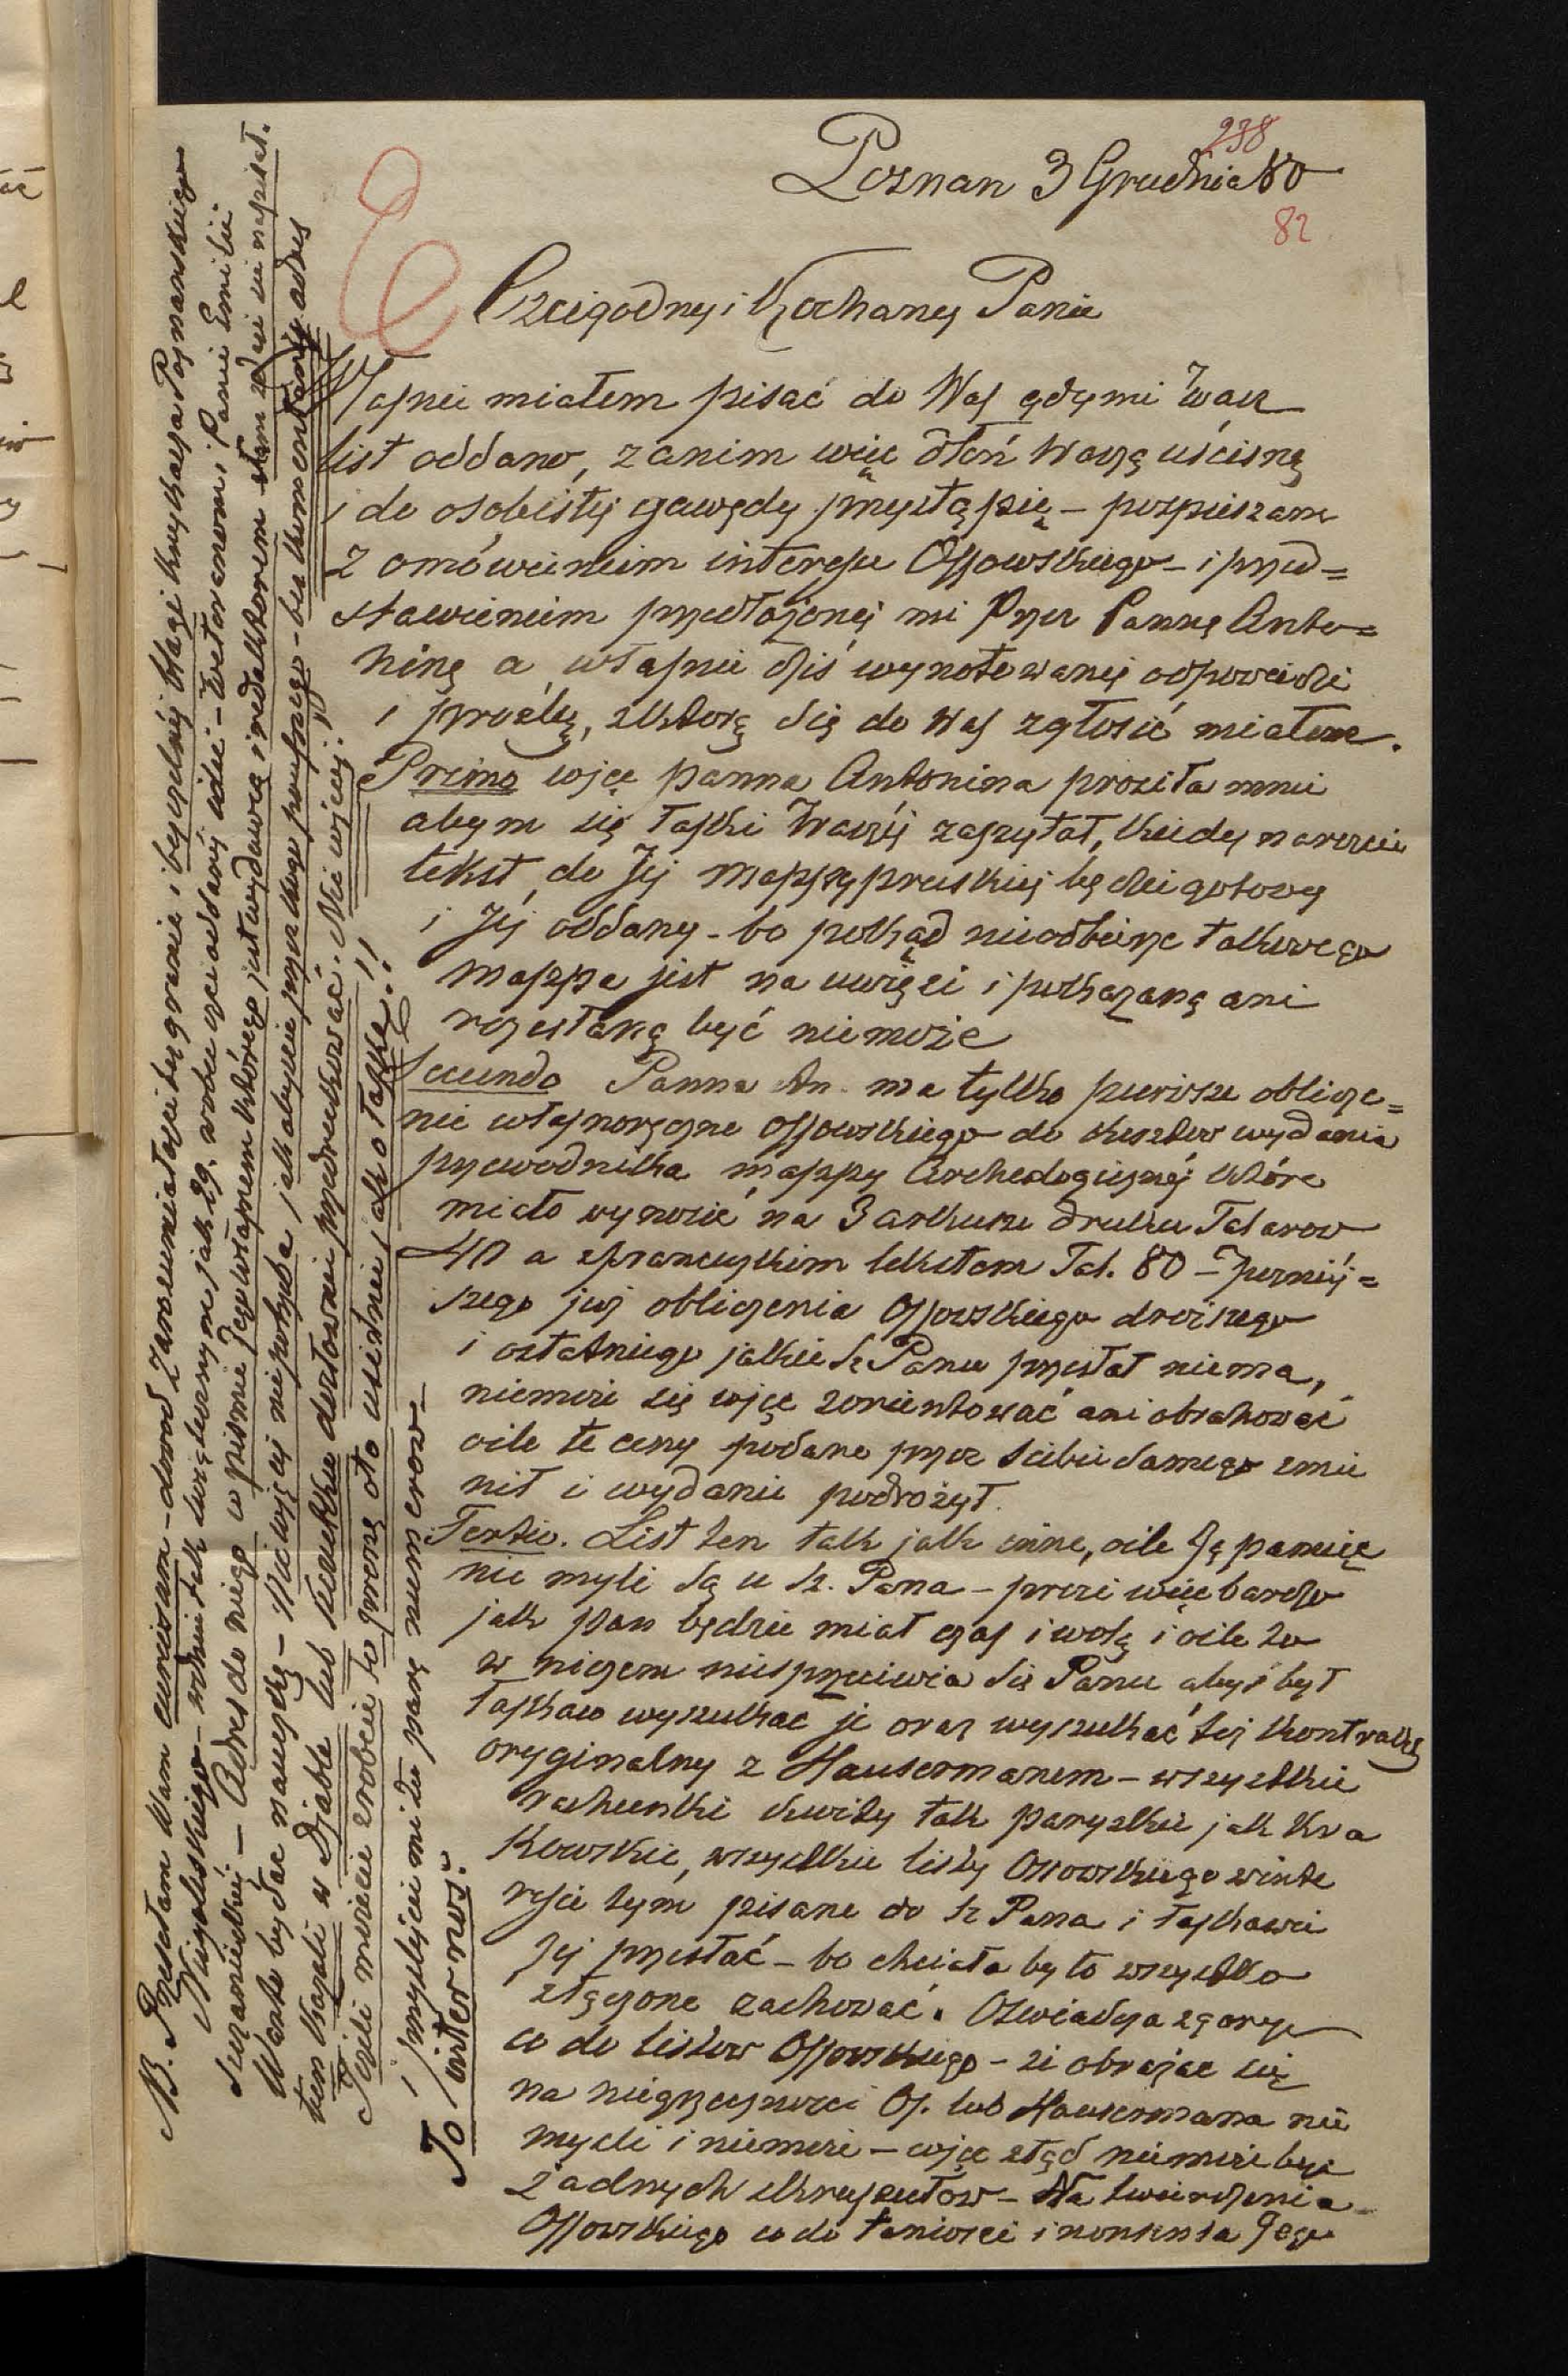 238
Poznan 3 Grudnia 80
82
Czcigodny i Kochany Panie
Własnie miałem pisać do Was gdy mi Wasz
list oddano, zanim więc dłoń Waszą uścisnę
i do osobistej gawędy przystąpię – pospieszam
z omówieniem interesu Ossowskiego – i przed=
stawieniem przedłożonej mi przez Pannę Anto=
ninę a własnie dziś wynotowanej odpowiedzi
i prośby, z którą się do Was zgłosić miałem.
Primo więc panna Antonina prosiła mnie
abym się łaski Waszej zapytał, kiedy narescie
tekst do Jej mappy pruskiej będzie gotowy
i Jej oddany – bo pokąd nieodbierze takowego
mappa jest na uwięzi i pokazaną ani
rozesłaną być niemoże
Secundo Panna An. ma tylko pierwsze oblicze=
nie własnoręczne Ossowskiego do kosztów wydania
przewodnika mappy Archeologicznej które
miało wynosić na 3 arkusze druku Talarow
40 a z francuzkim tekstem Tal. 80 – Pozniej=
szego jej obliczenia Ossowskiego drozszego
i ostatniego jakie Sz Panu przesłał niema,
niemoże się więc zorientować ani obrahować
oile te ceny podane przez Siebie samego zmie
nił i wydanie podrożył.
Tertio. List ten tak jak inne, oile Ją pamięć
nie myli są u Sz. Pana – prosi więc bardzo
jak Pan będzie miał czas i wolą i oile to
w niczem niesprzeciwia się Panu abyś był
łaskaw wyszukac je oraz wyszukać tej kontrakt
oryginalny z Hausermanem – wszystkie
rachunki kwity tak paryzkie jak kra
kowskie, wszystkie listy Ossowskiego w inte
resie tym pisane do Sz Pana i łaskawie
Jej przesłać – bo chciała by to wszystko
złączone zachować. Oświadcza z gory
co do listow Ossowskiego – że obrażać się
na niegrzecznosci Os. lub Hausermana nie
mysli i niemoże – więc ztąd niemoże być
żadnych skrupułów – Na twierdzenia
Ossowskiego co do taniosci i nonsensa Jego
NB. Przesłam Wam curiosum – dowod zarozumiałości bez granic i bezczelnej blagi
Adres do niego w pismie Jego własnem którego jest wydawcą i redaktorem
Warto będąc nauczkę – Nic więcej nie potrzeba jak abyście
w Djable lub
Jeśli możecie zrobcie to proszę oto usilnie, jako o łaskę!!
i przyslijcie mi tu parę numerow –
To inter nos!